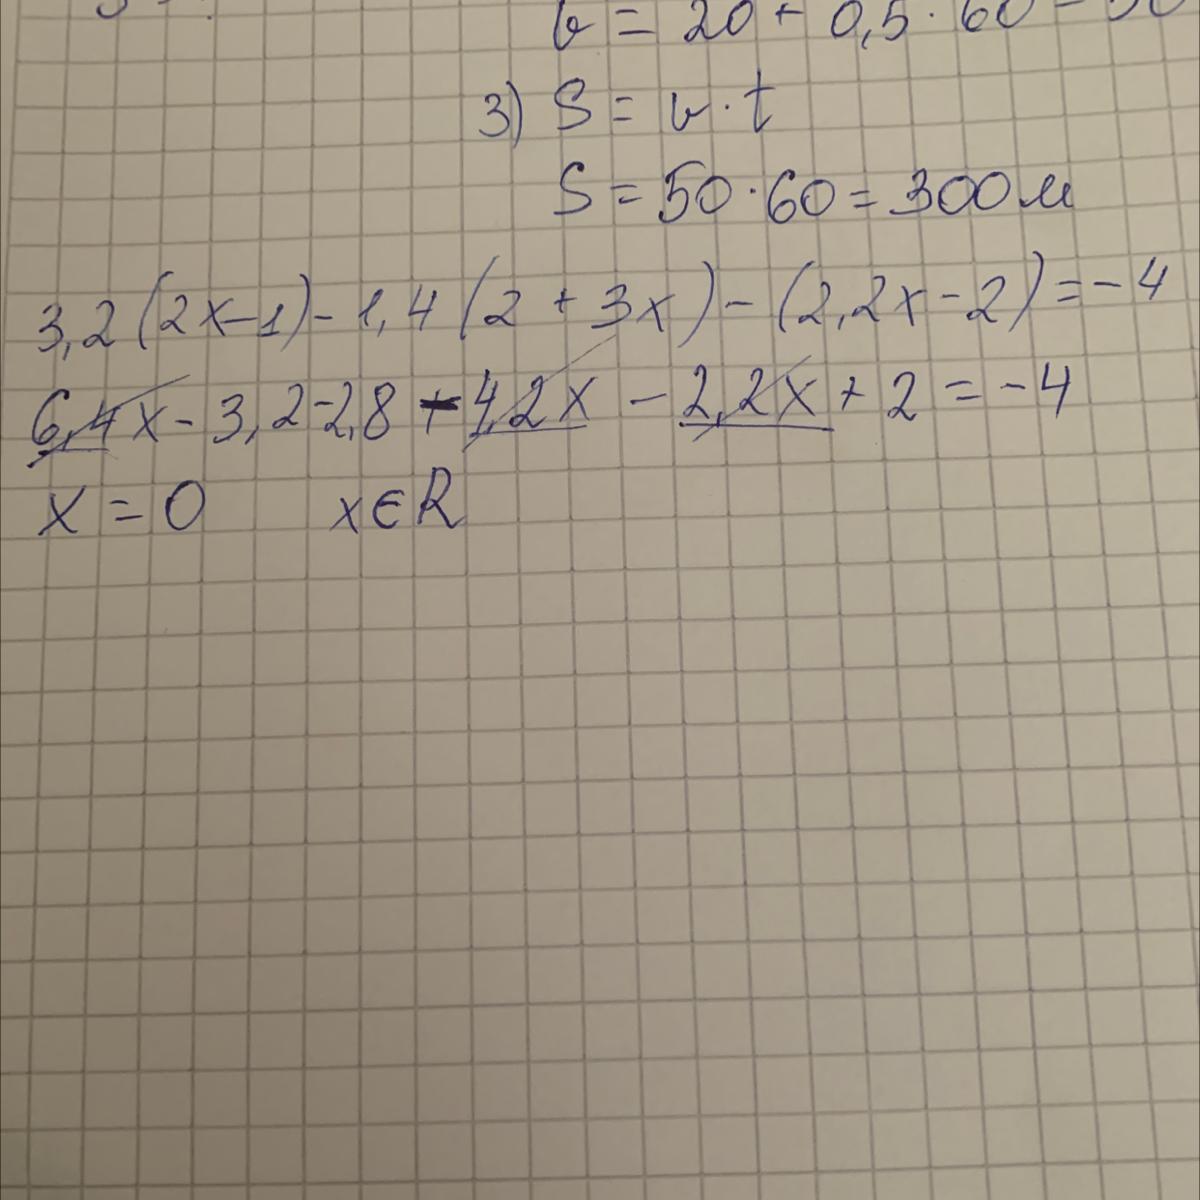 v = 20 + 0,5 · 60 = 50
3) S = v · t
S = 50 · 60 = 300 м
3,2 (2x-1) - 1,4 (2 + 3x) - (2,2x - 2) = -4
6,4x - 3,2 - 2,8 - 4,2x - 2,2x + 2 = -4
x = 0 x ∈ R